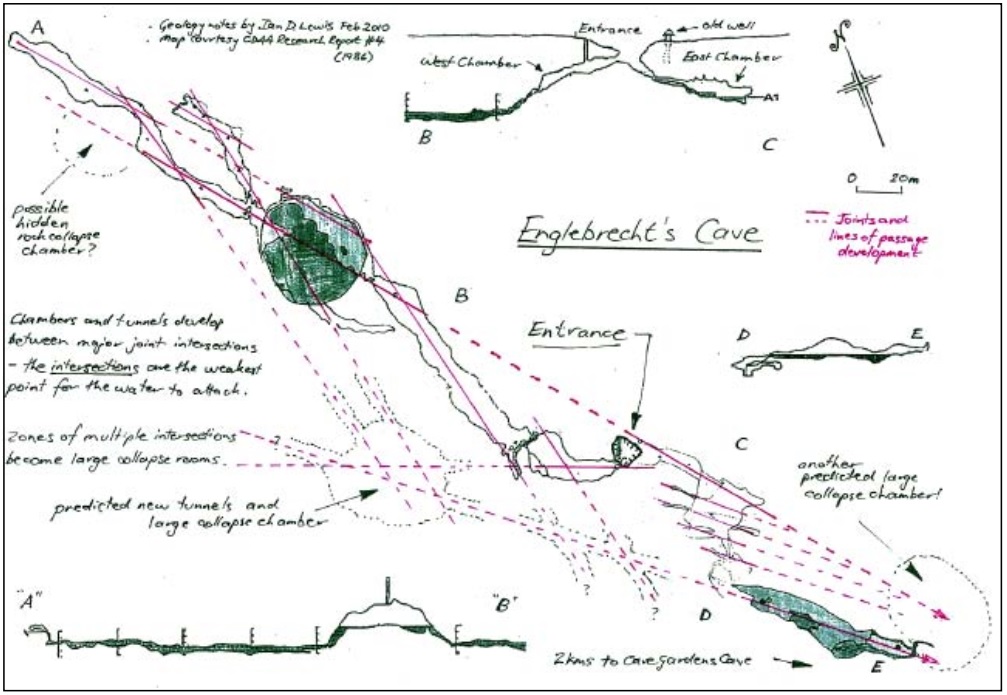 A
. Geology notes by Ian D. Lewis Feb 2010
. Map courtesy CDAA Research Report #4
(1986)
Entrance
old well
West Chamber
East Chamber
A1
B
C
N
0 20m
Joints and
lines of passage
development
possible
hidden
rock collapse
chamber?
Englebrecht's Cave
B
Chambers and tunnels develop
between major joint intersections
- the intersections are the weakest
point for the water to attack.
Entrance
D
E
Zones of multiple intersections
become large collapse rooms.
C
another
predicted large
collapse chamber!
predicted new tunnels and
large collapse chamber
?
?
?
"A"
"B"
D
E
2kms to Cave Gardens Cave